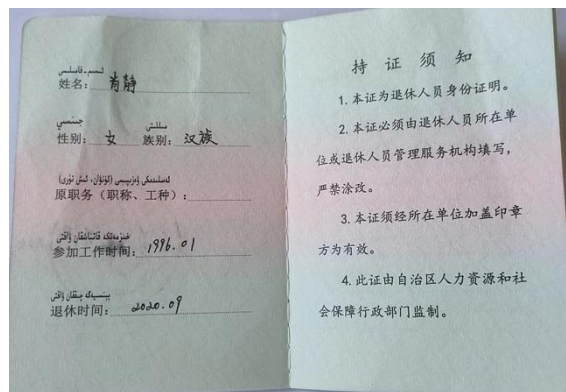 ئىسىم-فامىلىسى
姓名：肖静
جىنسىي مىللىتى
性别：女 族别：汉族
ئەسلىدىكى ۋەزىپىسى (ئۇنۋان، ئىش تۈرى)
原职务（职称、工种）：
خىزمەتكە قاتناشقان ۋاقتى
参加工作时间：1996.01
پېنسىيەگە چىققان ۋاقتى
退休时间：2020.09
持证须知
1.本证为退休人员身份证明。
2.本证必须由退休人员所在单
位或退休人员管理服务机构填写，
严禁涂改。
3.本证须经所在单位加盖印章
方为有效。
4.此证由自治区人力资源和社
会保障行政部门监制。